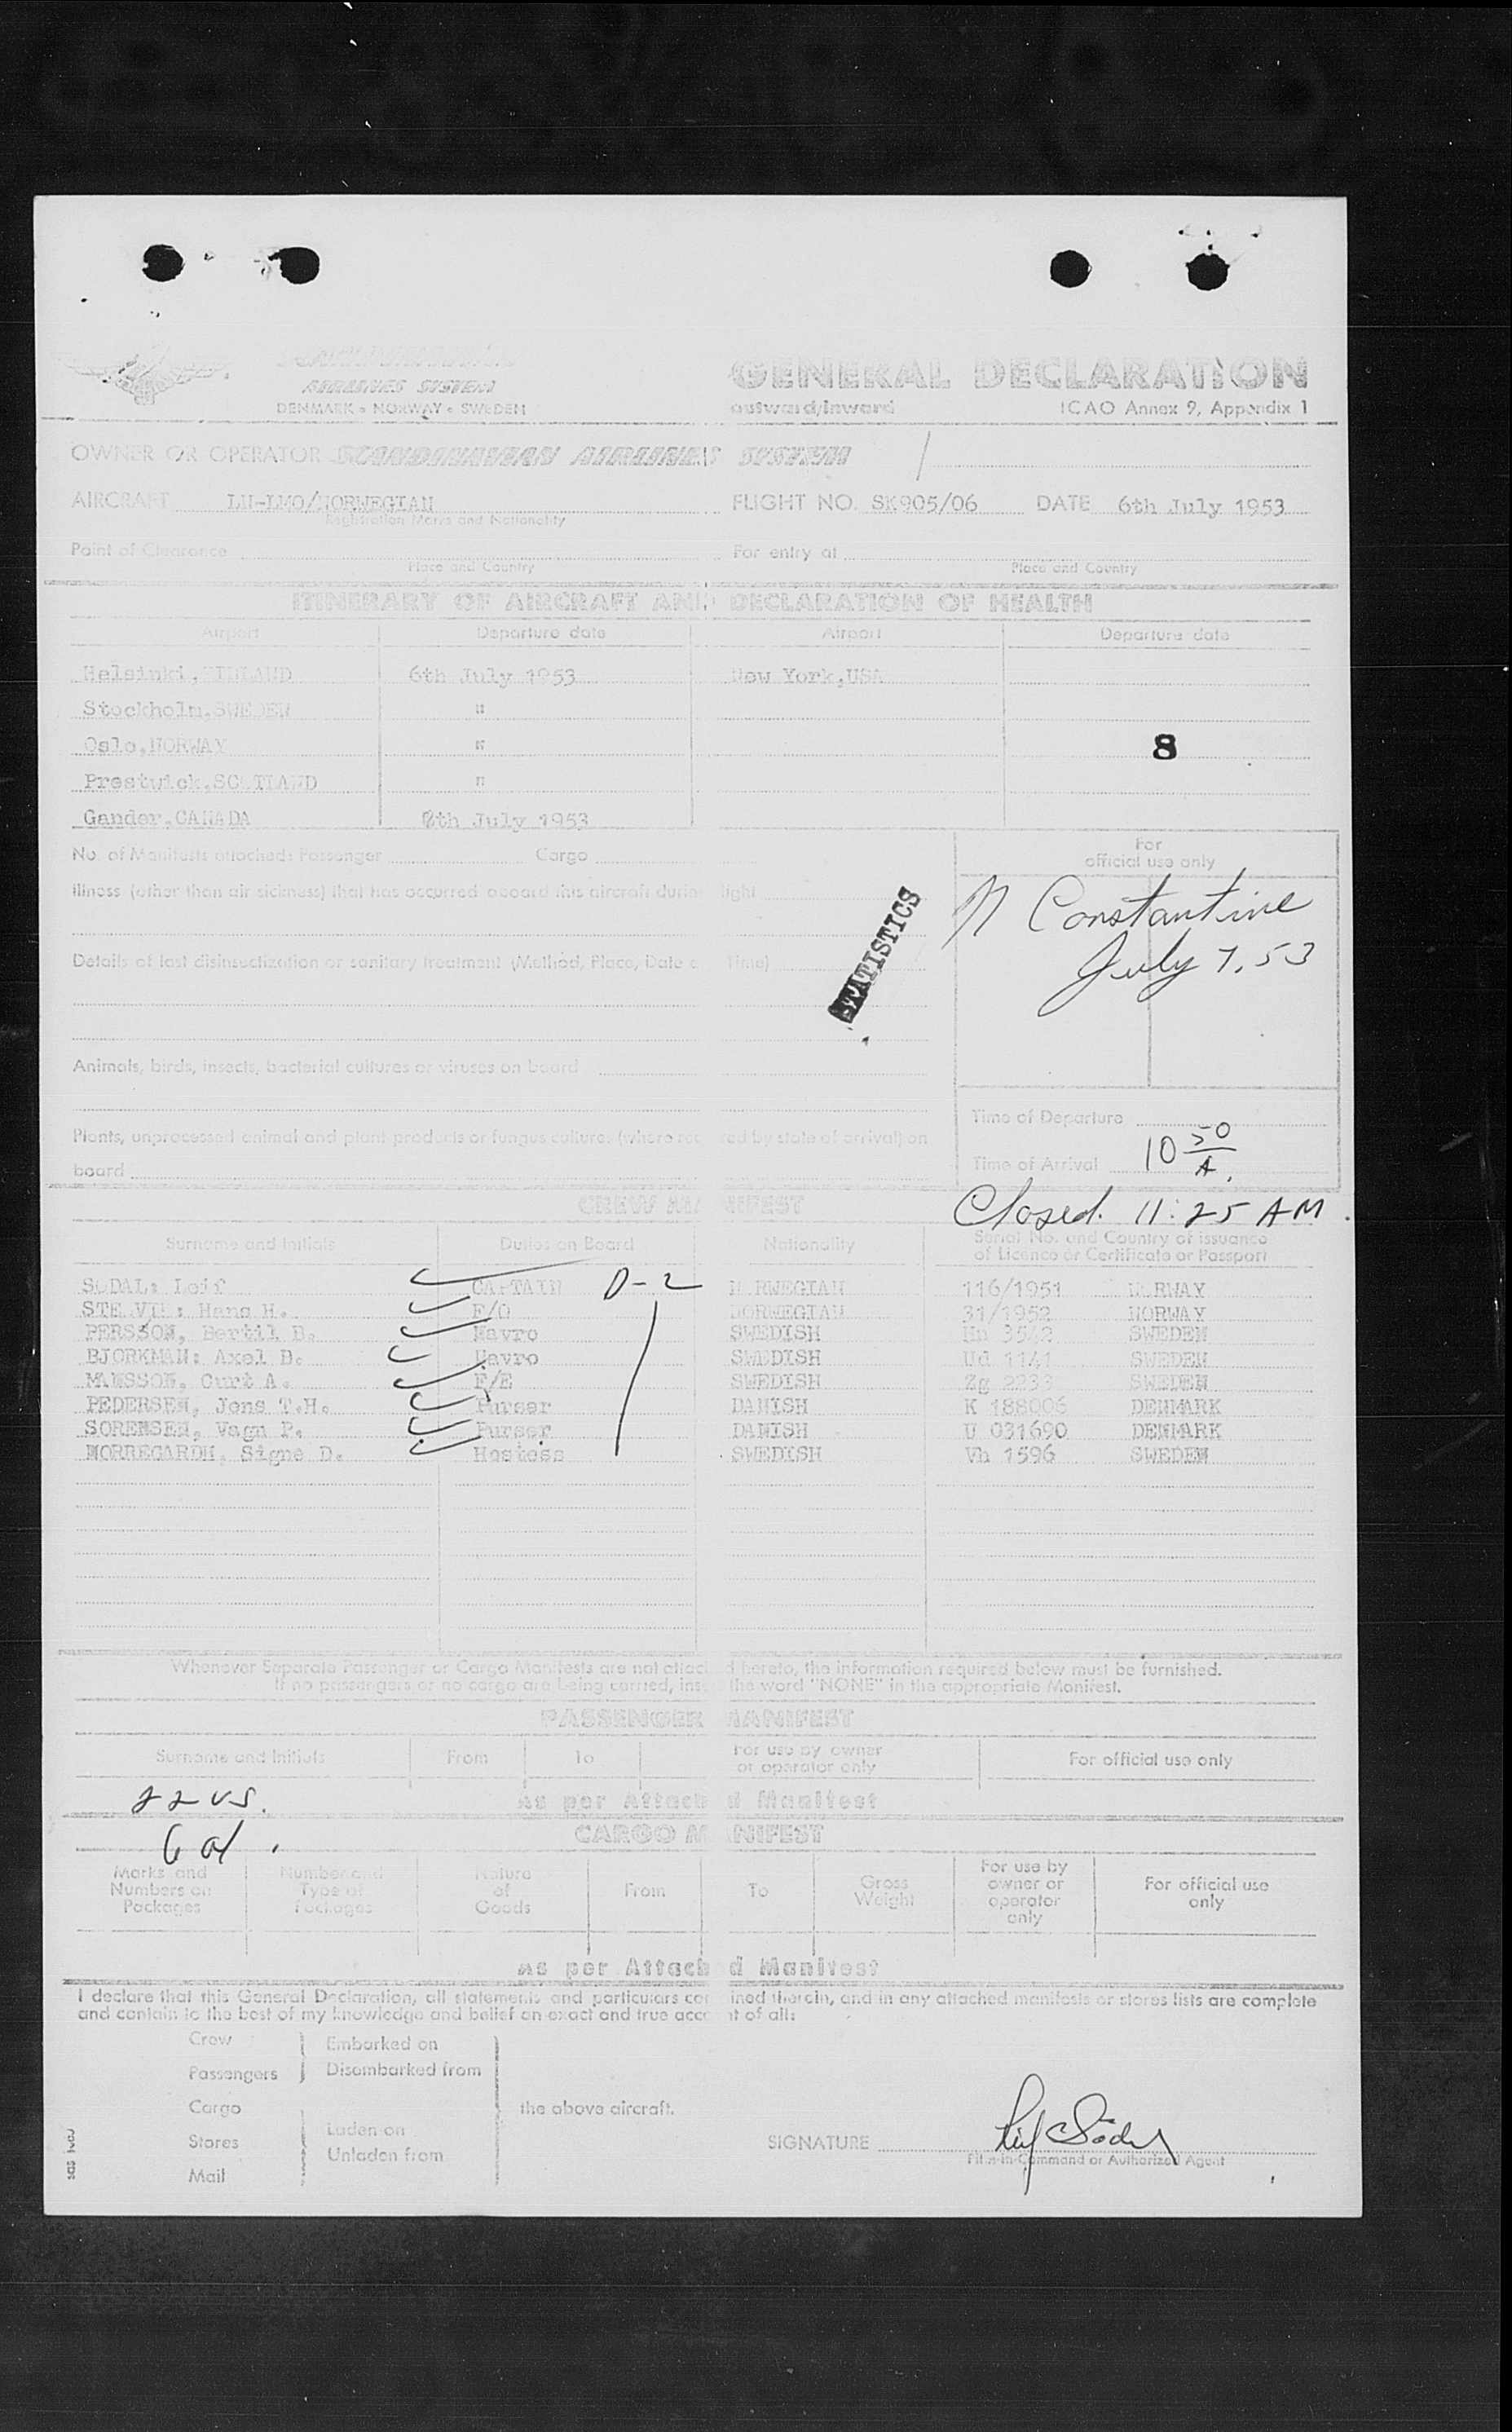 AIRLINES SYSTEM
DENMARK • NORWAY • SWEDEN
GENERAL DECLARATION
outward/inward
ICAO Annex 9, Appendix 1
OWNER OR OPERATOR SCANDINAVIAN AIRLINES SYSTEM
AIRCRAFT LN-LMO/NORWEGIAN
Registration Marks and Nationality
FLIGHT NO. SK905/06 DATE 6th July 1953
Point of Clearance
Place and Country
For entry at
Place and Country
ITINERARY OF AIRCRAFT AND DECLARATION OF HEALTH
Airport Departure date Airport Departure date
Helsinki, FINLAND 6th July 1953 New York, USA
Stockholm, SWEDEN "
Oslo, NORWAY " 8
Prestwick, SCOTLAND "
Gander, CANADA th July 1953
No. of Manifests attached: Passenger Cargo
For
official use only
Illness (other than air sickness) that has occurred aboard this aircraft during flight
STATISTICS
N Constantine
July 7, 53
Details of last disinsectization or sanitary treatment (Method, Place, Date Time)
Animals, birds, insects, bacterial cultures or viruses on board
Plants, unprocessed animal and plant products or fungus cultures (where required by state of arrival) on
board
Time of Departure
Time of Arrival 10 50 A.
Closed. 11:25 AM.
CREW MANIFEST
Surname and Initials Duties on Board Nationality Serial No. and Country of issuance
of Licence or Certificate or Passport
SODAL: Leif CAPTAIN D-2 NORWEGIAN 116/1951 NORWAY
Hans H. F/O NORWEGIAN 31/1952 NORWAY
PERSSON, Bertil B. Navro SWEDISH 3542 SWEDEN
BJORKMAN: Axel B. Navro SWEDISH Ud 1141 SWEDEN
MANSSON, Curt A. F/E SWEDISH Zg 2233 SWEDEN
PEDERSEN, Jens T.H. Purser DANISH K 188006 DENMARK
SORENSEN, Vagn P. Purser DANISH U 031690 DENMARK
NORREGARDH, Signe D. Hostess SWEDISH Vh 1596 SWEDEN
Whenever Separate Passenger or Cargo Manifests are not attached hereto, the information required below must be furnished.
If no passengers or no cargo are being carried, insert the word "NONE" in the appropriate Manifest.
PASSENGER MANIFEST
Surname and Initials From To For use by owner
or operator only For official use only
22 US.
As per Attached Manifest
6 al.
CARGO MANIFEST
Marks and
Numbers on
Packages
Number and
Type of
Packages
Nature
of
Goods
From
To
Gross
Weight
For use by
owner or
operator
only
For official use
only
As per Attached Manifest
I declare that this General Declaration, all statements and particulars contained therein, and in any attached manifests or stores lists are complete
and contain to the best of my knowledge and belief an exact and true account of all:
Crew
Passengers
Embarked on
Disembarked from
Cargo
Stores
Mail
Laden on
Unladen from
the above aircraft.
SIGNATURE Leif Södal
Pilot-in-Command or Authorized Agent